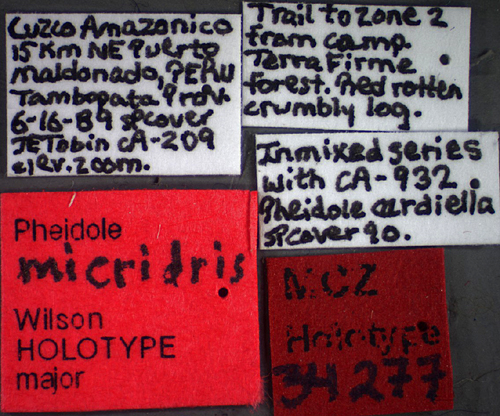 Cuzco Amazonico
15Km NE Puerto
Maldonado, PERU
Tambopata Prov.
6-16-89 spcover
JETobin CA-209
elev. 200m.
Trail to zone 2
from camp.
Terra Firme
forest. Red rotten
crumbly log.
In mixed series
with CA-932.
Pheidole cardiella
spcover 90.
Pheidole
micridris
Wilson
HOLOTYPE
major
MCZ
Holotype
34277